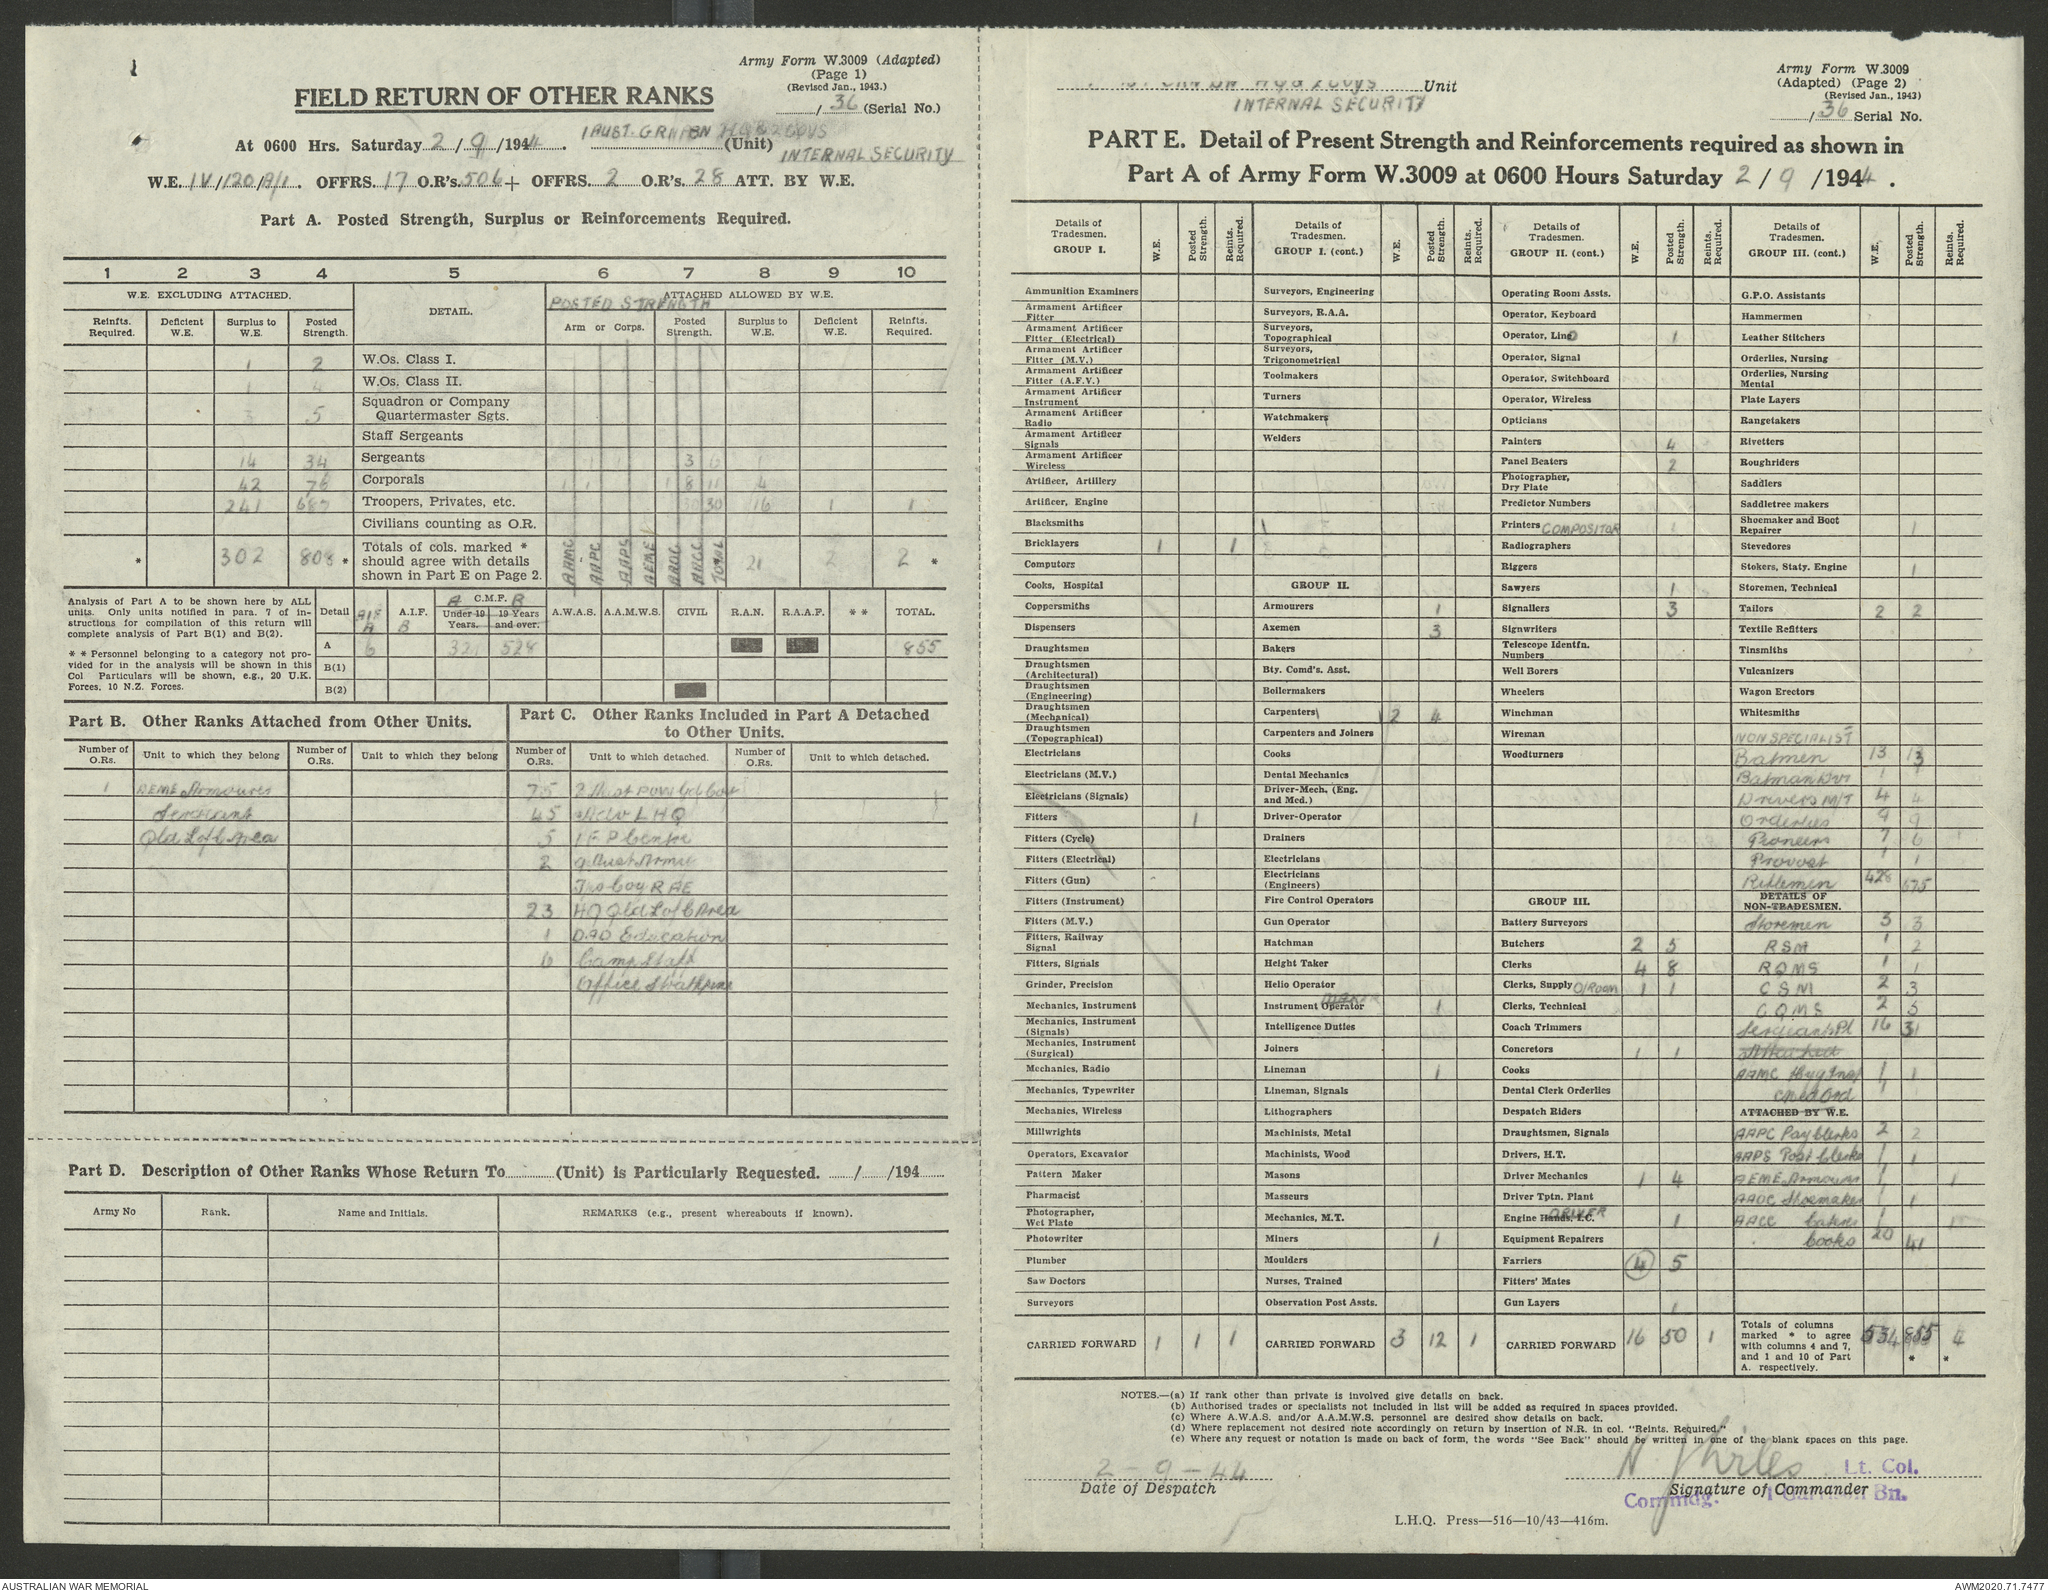 Army Form W.3009 (Adapted)
(Page 1)
(Revised Jan., 1943.)
/ 36 (Serial No.)
FIELD RETURN OF OTHER RANKS
At 0600 Hrs. Saturday 2 / 9 /1944. 1 AUST. GRN BN HQ & 2 COYS (Unit)
INTERNAL SECURITY
W.E. IV/120/A/1. OFFRS. 17 O.R's. 506 + OFFRS. 2 O.R's. 28 ATT. BY W.E.
Part A. Posted Strength, Surplus or Reinforcements Required.
1 2 3 4 5 6 7 8 9 10
W.E. EXCLUDING ATTACHED. DETAIL. POSTED STRENGTH ATTACHED ALLOWED BY W.E.
Reinfts. Required. Deficient W.E. Surplus to W.E. Posted Strength. Arm or Corps. Posted Strength. Surplus to W.E. Deficient W.E. Reinfts. Required.
1 2 W.Os. Class I.
1 4 W.Os. Class II.
3 5 Squadron or Company Quartermaster Sgts.
Staff Sergeants
14 34 Sergeants 3
42 76 Corporals 1 1 1 8 11 4
241 687 Troopers, Privates, etc. 30 30 16 1 1
Civilians counting as O.R.
* 302 808 * Totals of cols. marked * should agree with details shown in Part E on Page 2. AAMC AAPC AAPS AEME AAOC AACC TOTAL 21 2 2 *
Analysis of Part A to be shown here by ALL units. Only units notified in para. 7 of instructions for compilation of this return will complete analysis of Part B(1) and B(2).
* * Personnel belonging to a category not provided for in the analysis will be shown in this Col Particulars will be shown, e.g., 20 U.K. Forces, 10 N.Z. Forces.
Detail AIF A A.I.F. B A C.M.F. B Under 19 Years. 19 Years and over. A.W.A.S. A.A.M.W.S. CIVIL R.A.N. R.A.A.F. * * TOTAL.
A 6 321 528 855
B(1)
B(2)
Part B. Other Ranks Attached from Other Units.
Number of O.Rs. Unit to which they belong Number of O.Rs. Unit to which they belong
1 AEME Armourers
Serecrant
Qld L of C Area
Part C. Other Ranks Included in Part A Detached to Other Units.
Number of O.Rs. Unit to which detached. Number of O.Rs. Unit to which detached.
75 2 Aust POW Gd Coy
45 Adv L H Q
5 1 F P Centre
2 9 Aust Army
Trs Coy RAE
23 HQ Qld L of C Area
1 DAD Education
6 Camp Staff
Office Strathpine
Part D. Description of Other Ranks Whose Return To (Unit) is Particularly Requested. / /194
Army No Rank. Name and Initials. REMARKS (e.g., present whereabouts if known).
Army Form W.3009
(Adapted) (Page 2)
(Revised Jan., 1943)
/ 36 Serial No.
HQ & 2 COYS Unit
INTERNAL SECURITY
PART E. Detail of Present Strength and Reinforcements required as shown in
Part A of Army Form W.3009 at 0600 Hours Saturday 2 / 9 /1944.
Details of Tradesmen. GROUP I. W.E. Posted Strength. Reints. Required.
Ammunition Examiners
Armament Artificer Fitter
Armament Artificer Fitter (Electrical)
Armament Artificer Fitter (M.V.)
Armament Artificer Fitter (A.F.V.)
Armament Artificer Instrument
Armament Artificer Radio
Armament Artificer Signals
Armament Artificer Wireless
Artificer, Artillery
Artificer, Engine
Blacksmiths
Bricklayers 1 1
Computors
Cooks, Hospital
Coppersmiths
Dispensers
Draughtsmen
Draughtsmen (Architectural)
Draughtsmen (Engineering)
Draughtsmen (Mechanical)
Draughtsmen (Topographical)
Electricians
Electricians (M.V.)
Electricians (Signals)
Fitters 1
Fitters (Cycle)
Fitters (Electrical)
Fitters (Gun)
Fitters (Instrument)
Fitters (M.V.)
Fitters, Railway Signal
Fitters, Signals
Grinder, Precision
Mechanics, Instrument
Mechanics, Instrument (Signals)
Mechanics, Instrument (Surgical)
Mechanics, Radio
Mechanics, Typewriter
Mechanics, Wireless
Millwrights
Operators, Excavator
Pattern Maker
Pharmacist
Photographer, Wet Plate
Photowriter
Plumber
Saw Doctors
Surveyors
CARRIED FORWARD 1 1 1
Details of Tradesmen. GROUP I. (cont.) W.E. Posted Strength. Reints. Required.
Surveyors, Engineering
Surveyors, R.A.A.
Surveyors, Topographical
Surveyors, Trigonometrical
Toolmakers
Turners
Watchmakers
Welders
GROUP II.
Armourers 1
Axemen 3
Bakers
Bty. Comd's. Asst.
Boilermakers
Carpenters 2 4
Carpenters and Joiners
Cooks
Dental Mechanics
Driver-Mech. (Eng. and Med.)
Driver-Operator
Drainers
Electricians
Electricians (Engineers)
Fire Control Operators
Gun Operator
Hatchman
Height Taker
Helio Operator
Instrument Operator MAKER 1
Intelligence Duties
Joiners
Lineman 1
Lineman, Signals
Lithographers
Machinists, Metal
Machinists, Wood
Masons
Masseurs
Mechanics, M.T.
Miners 1
Moulders
Nurses, Trained
Observation Post Assts.
CARRIED FORWARD 3 12 1
Details of Tradesmen. GROUP II. (cont.) W.E. Posted Strength. Reints. Required.
Operating Room Assts.
Operator, Keyboard
Operator, Lino 1
Operator, Signal
Operator, Switchboard
Operator, Wireless
Opticians
Painters 4
Panel Beaters 2
Photographer, Dry Plate
Predictor Numbers
Printers COMPOSITOR 1
Radiographers
Riggers
Sawyers 1
Signallers 3
Signwriters
Telescope Identfn. Numbers
Well Borers
Wheelers
Winchman
Wireman
Woodturners
GROUP III.
Battery Surveyors
Butchers 2 5
Clerks 4 8
Clerks, Supply O/ROOM 1 1
Clerks, Technical
Coach Trimmers
Concretors 1 1
Cooks
Dental Clerk Orderlies
Despatch Riders
Draughtsmen, Signals
Drivers, H.T.
Driver Mechanics 1 4
Driver Tptn. Plant
Engine Hands, I.C. DRIVER 1
Equipment Repairers
Farriers 4 5
Fitters' Mates
Gun Layers 1
CARRIED FORWARD 16 50 1
Details of Tradesmen. GROUP III. (cont.) W.E. Posted Strength. Reints Required.
G.P.O. Assistants
Hammermen
Leather Stitchers
Orderlies, Nursing
Orderlies, Nursing Mental
Plate Layers
Rangetakers
Rivetters
Roughriders
Saddlers
Saddletree makers
Shoemaker and Boot Repairer 1
Stevedores
Stokers, Staty. Engine 1
Storemen, Technical
Tailors 2 2
Textile Refitters
Tinsmiths
Vulcanizers
Wagon Erectors
Whitesmiths
NON SPECIALIST
Batmen 13 13
Batman Dvr 1 1
Drivers M/T 4 4
Orderlies 9 9
Pioneers 7 6 1
Provost 1 1
Riflemen 428 675
DETAILS OF NON-TRADESMEN.
Storemen 3 3
RSM 1 2
RQMS 1 1
CSM 2 3
CQMS 2 5
Sergeants Pl 16 31
Attached
AAMC Hyg Insp 1 1
C Med Ord 1
ATTACHED BY W.E.
AAPC Pay Clerks 2 2
AAPS Post Clerks 1 1
AEME Armourer 1 1
AAOC Shoemaker 1 1
AACC Caterer 1 1
Cooks 20 41
Totals of columns marked * to agree with columns 4 and 7, and 1 and 10 of Part A. respectively. 534 855 * 4 *
NOTES.—(a) If rank other than private is involved give details on back.
(b) Authorised trades or specialists not included in list will be added as required in spaces provided.
(c) Where A.W.A.S. and/or A.A.M.W.S. personnel are desired show details on back.
(d) Where replacement not desired note accordingly on return by insertion of N.R. in col. "Reints. Required."
(e) Where any request or notation is made on back of form, the words "See Back" should be written in one of the blank spaces on this page.
2 - 9 - 44
Date of Despatch
Lt. Col.
Signature of Commander
Commdg. 1 Garrison Bn.
L.H.Q. Press—516—10/43—416m.
AUSTRALIAN WAR MEMORIAL
AWM2020.71.7477